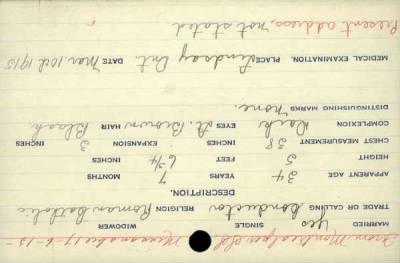 MARRIED yes SINGLE WIDOWER
TRADE OR CALLING Conductor RELIGION Roman Catholic
DESCRIPTION.
APPARENT AGE 34 YEARS 7 MONTHS
HEIGHT 5 FEET 6 3/4 INCHES
CHEST MEASUREMENT 38 INCHES EXPANSION 3 INCHES
COMPLEXION Dark EYES Lt. Brown HAIR Black
DISTINGUISHING MARKS none.
MEDICAL EXAMINATION. PLACE Lindsay Ont. DATE Mar. 10th 1915
Present address, not stated